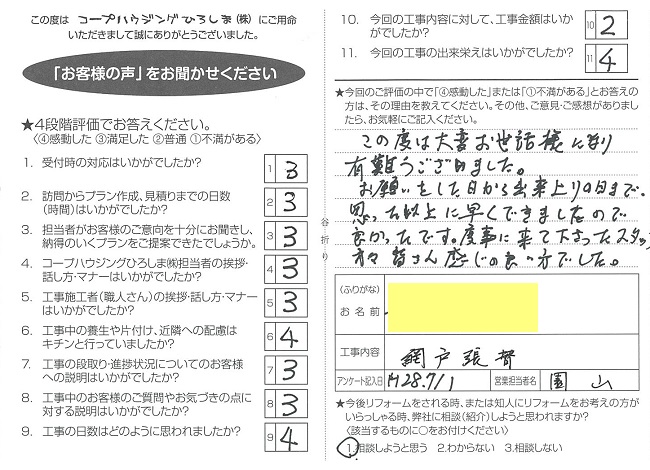 この度は コープハウジングひろしま(株) にご用命
いただきまして誠にありがとうございました。
「お客様の声」をお聞かせください
★4段階評価でお答えください。
〈④感動した ③満足した ②普通 ①不満がある〉
1. 受付時の対応はいかがでしたか? 1 3
2. 訪問からプラン作成、見積りまでの日数
(時間)はいかがでしたか? 2 3
3. 担当者がお客様のご意向を十分にお聞きし、
納得のいくプランをご提案できたでしょうか。 3 3
4. コープハウジングひろしま㈱担当者の挨拶・
話し方・マナーはいかがでしたか? 4 3
5. 工事施工者(職人さん)の挨拶・話し方・マナー
はいかがでしたか? 5 3
6. 工事中の養生や片付け、近隣への配慮は
キチンと行っていましたか? 6 4
7. 工事の段取り・進捗状況についてのお客様
への説明はいかがでしたか? 7 3
8. 工事中のお客様のご質問やお気づきの点に
対する説明はいかがでしたか? 8 3
9. 工事の日数はどのように思われましたか? 9 4
谷折り
10. 今回の工事内容に対して、工事金額はいか
がでしたか? 10 2
11. 今回の工事の出来栄えはいかがでしたか? 11 4
★今回のご評価の中で「④感動した」または「①不満がある」とお答え
の方は、その理由を教えてください。その他、ご意見・ご感想がありまし
たら、お気軽にご記入ください。
この度は大変お世話様になり
有難うございました。
お願いをした日から出来上り日まで、
思った以上に早くできましたので
良かったです。度事に来て下さったスタッフ
方々皆さん感じの良い方でした。
(ふりがな)
お名前
工事内容 網戸張替
アンケート記入日 H28.7/1 営業担当者名 園山
★今後リフォームをされる時、または知人にリフォームをお考えの方が
いらっしゃる時、弊社に相談(紹介)しようと思われますか?
〈該当するものに○をお付けください〉
1.相談しようと思う 2.わからない 3.相談しない